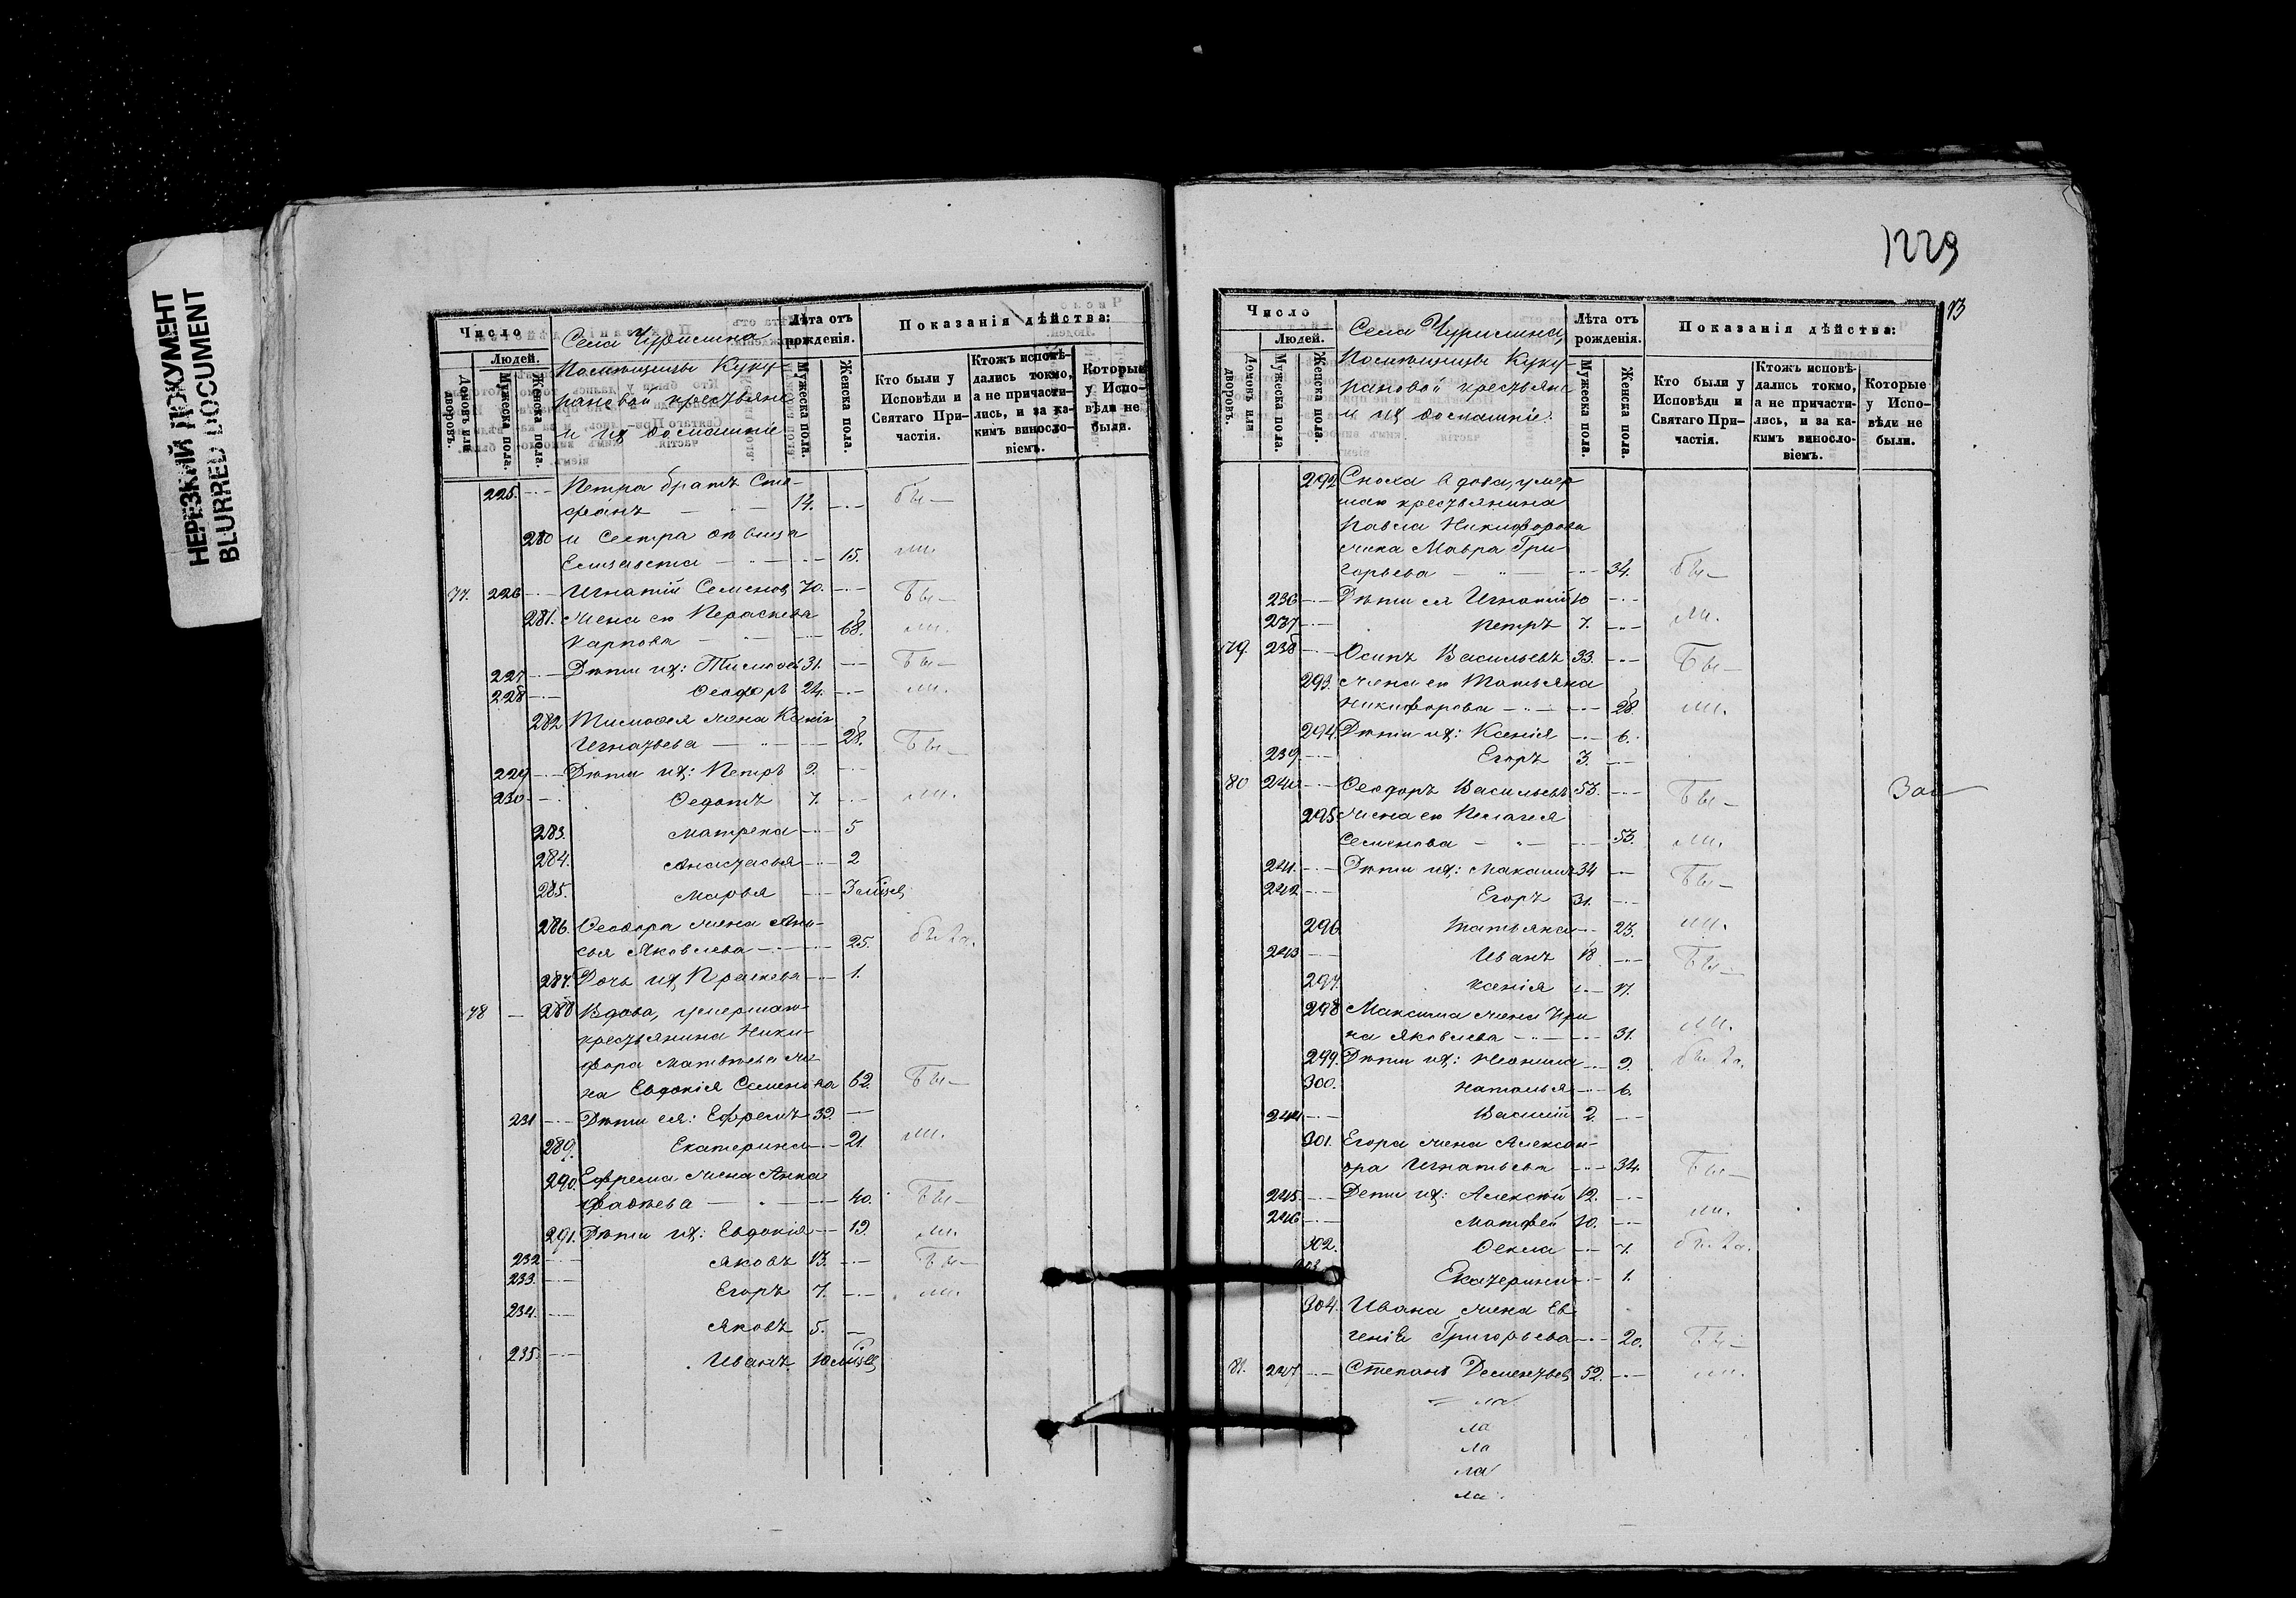 НЕРЕЗКИЙ ДОКУМЕНТ
BLURRED DOCUMENT
Число
Людей.
Домовъ или дворовъ.
Мужеска пола.
Женска пола.
Села Чурилина
Помѣщицы Куку-
рановой крестьяне
и их домашніе
Лѣта отъ рожденія.
Мужеска пола.
Женска пола.
Показанія дѣйства:
Кто были у Исповѣди и Святаго При-частія.
Ктожъ исповѣ-дались токмо, а не причасти-лись, и за ка-кимъ винословіемъ.
Которые у Испо-вѣди не были.
225. Петра братъ Сте-
фанъ 14. бы-
280 и Сестра
Елизавета 15. ли.
77. 226 Игнатій Семенов 70. Бы-
281. жена ею Параскева
Карпова 68. ли.
227 Дѣти их: Тимофей 31. Бы-
228 Ѳеодоръ 24. ли.
282 Тимофея жена Ксенія
Игнатьева 28. Бы-
229 Дѣти их: Петръ 9.
230 Ѳедотъ 7. ли.
283. Матрена 5
284. Анастасья 2
285. Марья 3
286. Ѳеодора жена Ани-
сья Яковлева 25. была.
287. Дочь их Прасковья 1.
78 288 Вдова, умершаго
крестьянина Ники-
фора Матвѣева же-
на Евдокія Семенова 62. Бы-
231 Дѣти ея: Ефремъ 39.
289. Екатерина 21. ли.
290. Ефрема жена Анна
Фадѣева 40. Бы-
291. Дѣти их: Евдокія 19. ли.
232 Яковъ 13. Бы-
233. Егоръ 7. ли.
234. Яковъ 5.
235. Иванъ 10
1229
13
Число
Людей.
Домовъ или дворовъ.
Мужеска пола.
Женска пола.
Села Чурилина,
Помѣщицы Куку-
рановой крестьяне
и их домашніе.
Лѣта отъ рожденія.
Мужеска пола.
Женска пола.
Показанія дѣйства:
Кто были у Исповѣди и Святаго При-частія.
Ктожъ исповѣ-дались токмо, а не причасти-лись, и за ка-кимъ винословіемъ.
Которые у Испо-вѣди не были.
292 Сноха вдова, умер-
шаго крестьянина
Павла Никифорова
жена Мавра Гри-
горьева 34. бы-
236 Дѣти ея Игнатій 10
237 Петръ 7. ли.
79. 238 Осипъ Васильевъ 33. Бы-
293. жена ею Татьяна
Никифорова 28. ли.
294. Дѣти их: Ксенія 6.
239 Егоръ 3.
80 240 Ѳеодоръ Васильевъ 53. Бы-
295 жена ею Пелагея
Семенова 53. ли.
241. Дѣти их: Максимъ 34 Бы-
242 Егоръ 31.
296 Татьяна 23. ли.
243 Иванъ 18. Бы-
297. Ксенія 17.
298 Максима жена Ири-
на Яковлева 31. ли.
299. Дѣти их: Неонила 9. была.
300. Наталья 6.
244 Василій 2.
301. Егора жена Алексан-
дра Игнатьева 34. Бы-
245. Дети их: Алексѣй 12.
246 Матвей 10. ли.
302. Ѳекла 7. была.
303 Екатерина 1.
304. Ивана жена Ев-
генія Григорьева 20. Бы-
81. 247 Степанъ Дементьев 52. ли.
ла
ла
ла
ла
ла